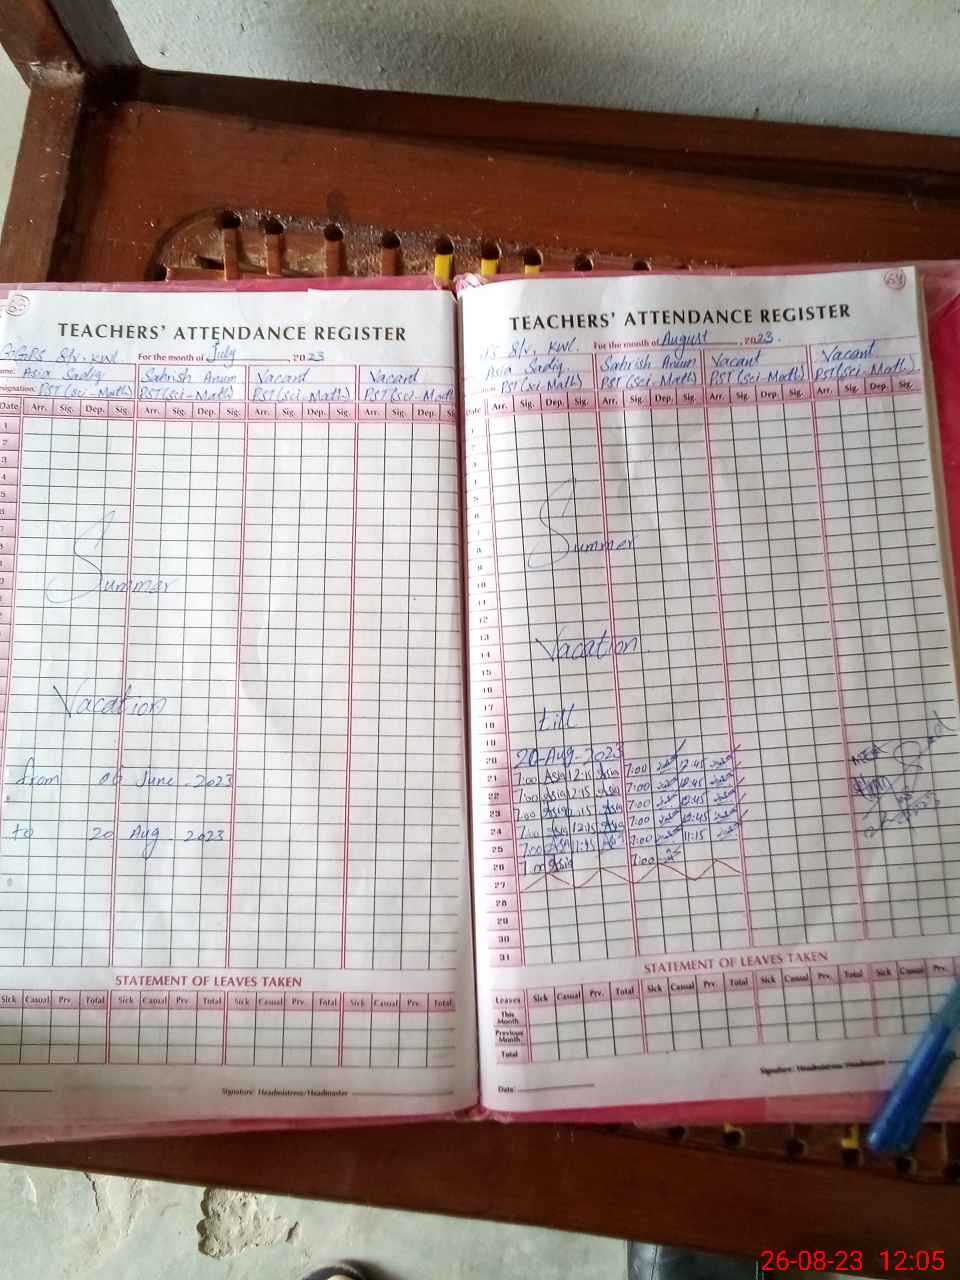 TEACHERS' ATTENDANCE REGISTER
For the month of July, 2023
Name: Asia Sadiq Sahrish Anum Vacant Vacant
Designation: PST (sci-Math) PST (sci-Math) PST (sci-Math) PST (sci-Math)
Date Arr. Sig. Dep. Sig. Arr. Sig. Dep. Sig. Arr. Sig. Dep. Sig. Arr. Sig. Dep. Sig
1
2
3
Summer
Vacation
from 06 June - 2023
to 20 Aug. 2023
STATEMENT OF LEAVES TAKEN
Sick Casual Prv. Total Sick Casual Prv. Total Sick Casual Prv. Total Sick Casual Prv. Total
Signature: Headmistress/Headmaster
64
TEACHERS' ATTENDANCE REGISTER
For the month of August, 2023.
Asia Sadiq Sahrish Anum Vacant Vacant
PST (sci-Math) PST (sci-Math) PST (sci-Math) PST (sci-Math)
Date Arr. Sig. Dep. Sig. Arr. Sig. Dep. Sig. Arr. Sig. Dep. Sig. Arr. Sig. Dep. Sig.
1
2
3
4
5
6
7
8
Summer
9
10
11
12
13
14
Vacation.
15
16
17
18
till
19
20 20-Aug-2023
21 7:00 Asia 12:15 Asia 7:00 12:45
22 7:00 Asia 12:15 Asia 7:00 12:45
23 7:00 Asia 12:15 Asia 7:00 12:45
24 7:00 Asia 12:15 Asia 7:00 12:45
25 7:00 Asia 11:15 7:00 11:15
26 Asia 7:00
27
28
29
30
31
STATEMENT OF LEAVES TAKEN
Leaves Sick Casual Prv. Total Sick Casual Prv. Total Sick Casual Prv. Total Sick Casual Prv.
This Month
Previous Month
Total
Date: Signature: Headmistress/Headmaster
26-08-23 12:05